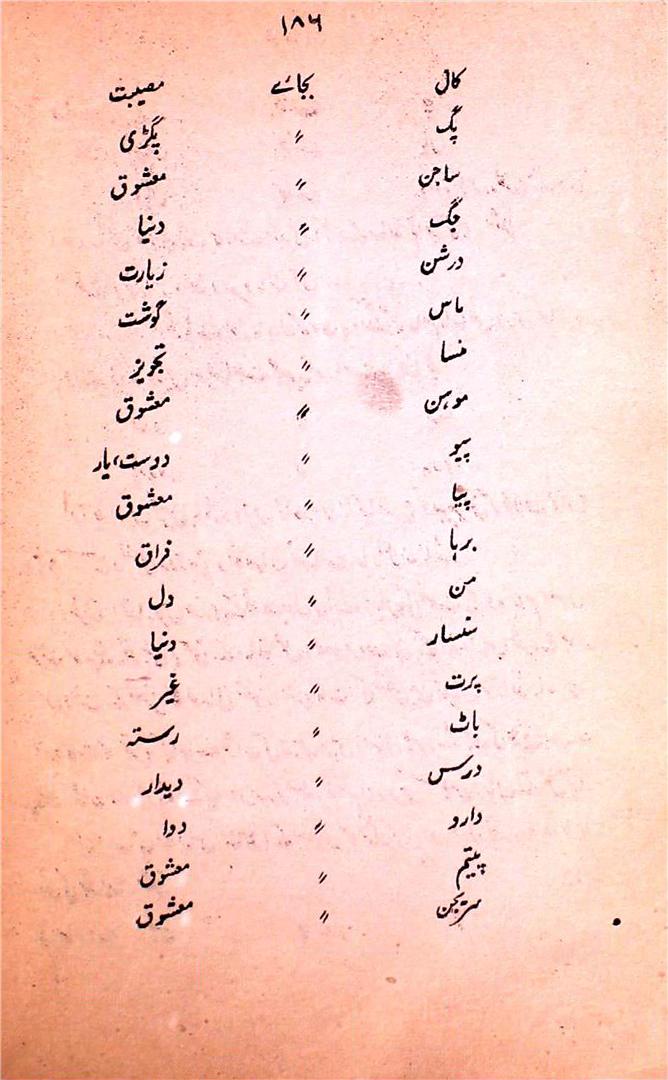 ۱۸۶
کال بجائے مصیبت
پگ 〃 پگڑی
ساجن 〃 معشوق
جگ 〃 دنیا
درشن 〃 زیارت
ماس 〃 گوشت
منسا 〃 تجویز
موہن 〃 معشوق
پیو 〃 دوست،یار
پیا 〃 معشوق
برہا 〃 فراق
من 〃 دل
سنسار 〃 دنیا
پرت 〃 غیر
باٹ 〃 رستہ
درس 〃 دیدار
دارو 〃 دوا
پیتم 〃 معشوق
سریجن 〃 معشوق